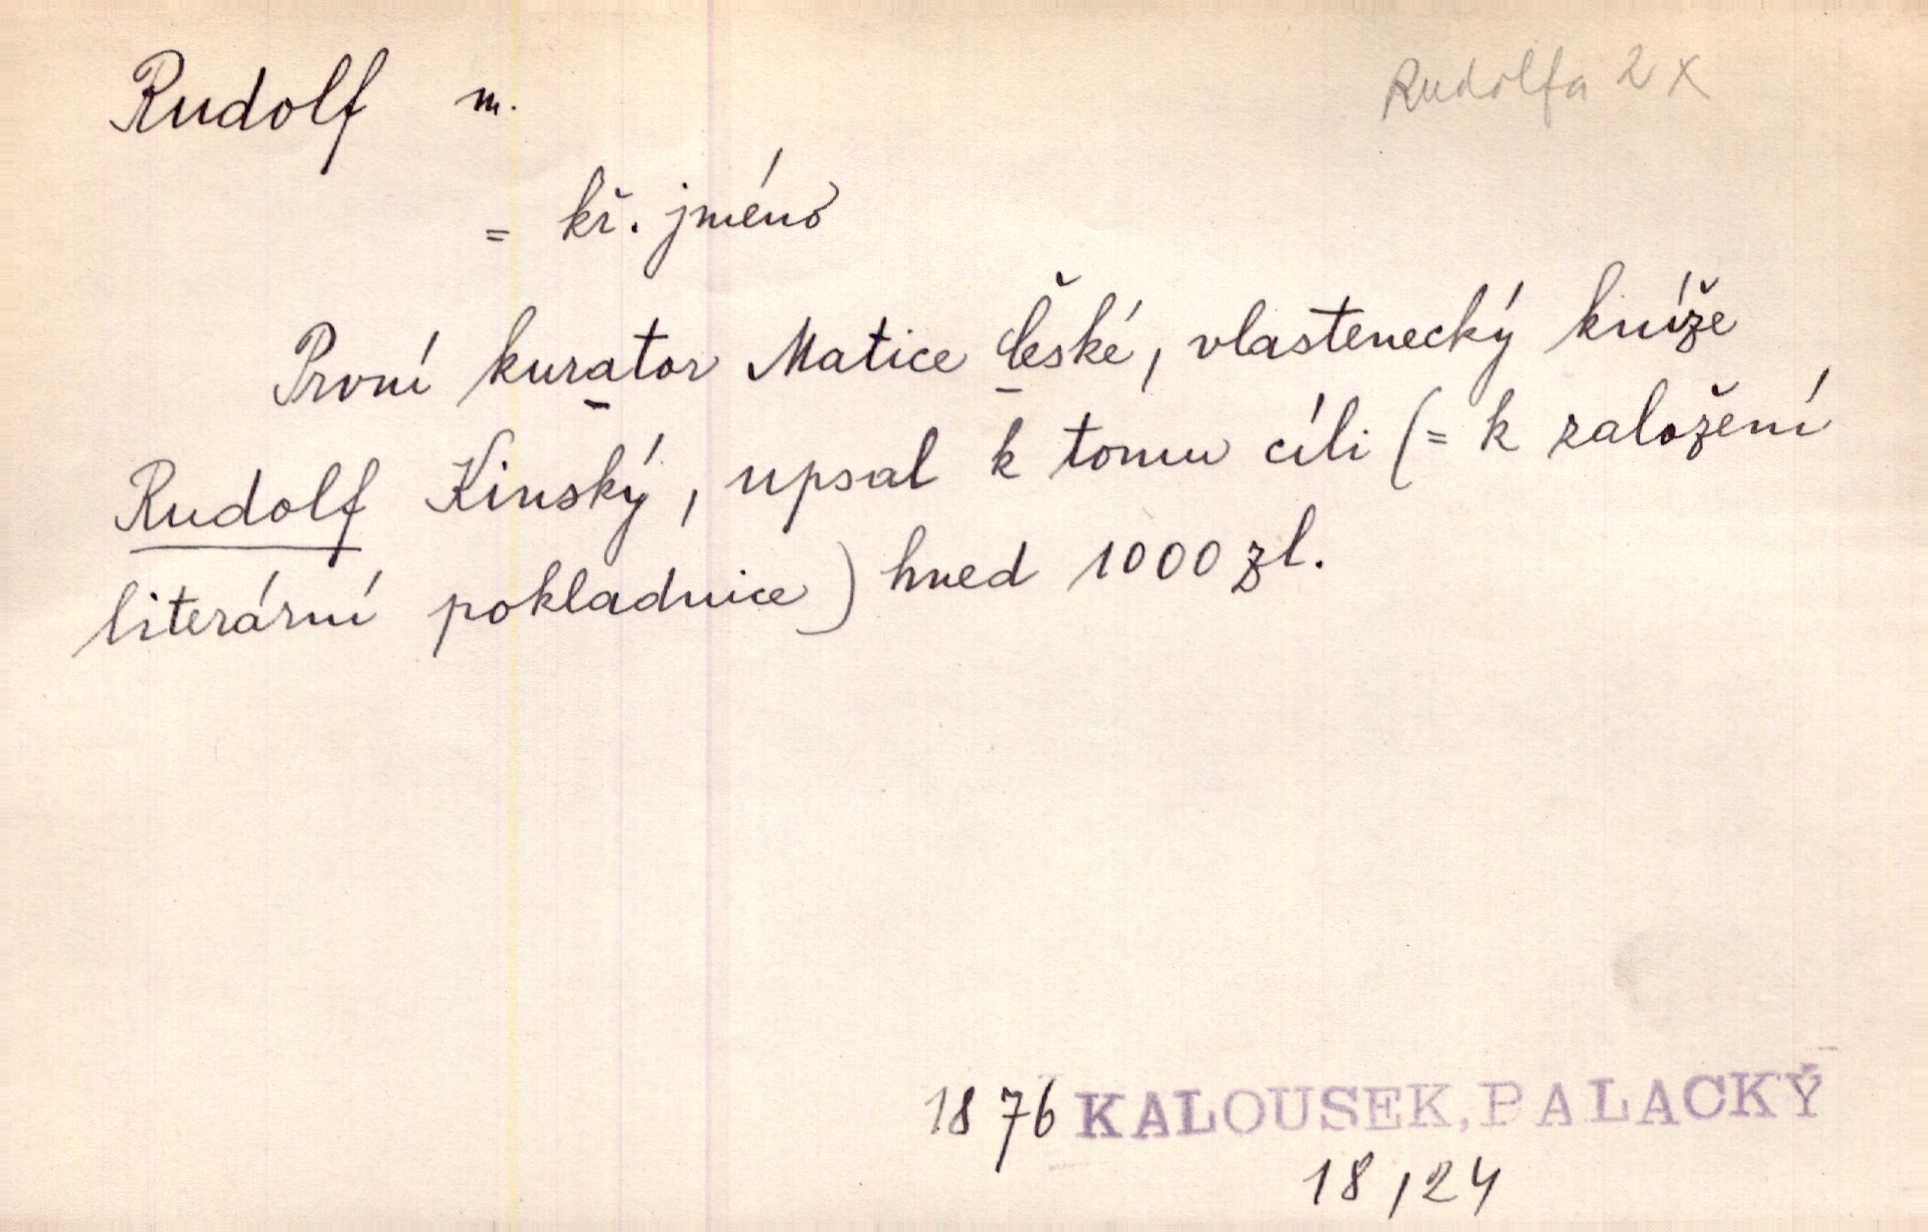 Rudolf m. Rudolfa 2x
= kř. jméno
První kurator Matice České, vlastenecký kníže
Rudolf Kinský, upsal k tomu cíli (= k založení
literární pokladnice) hned 1000 zl.
1876 KALOUSEK, PALACKÝ
18,24